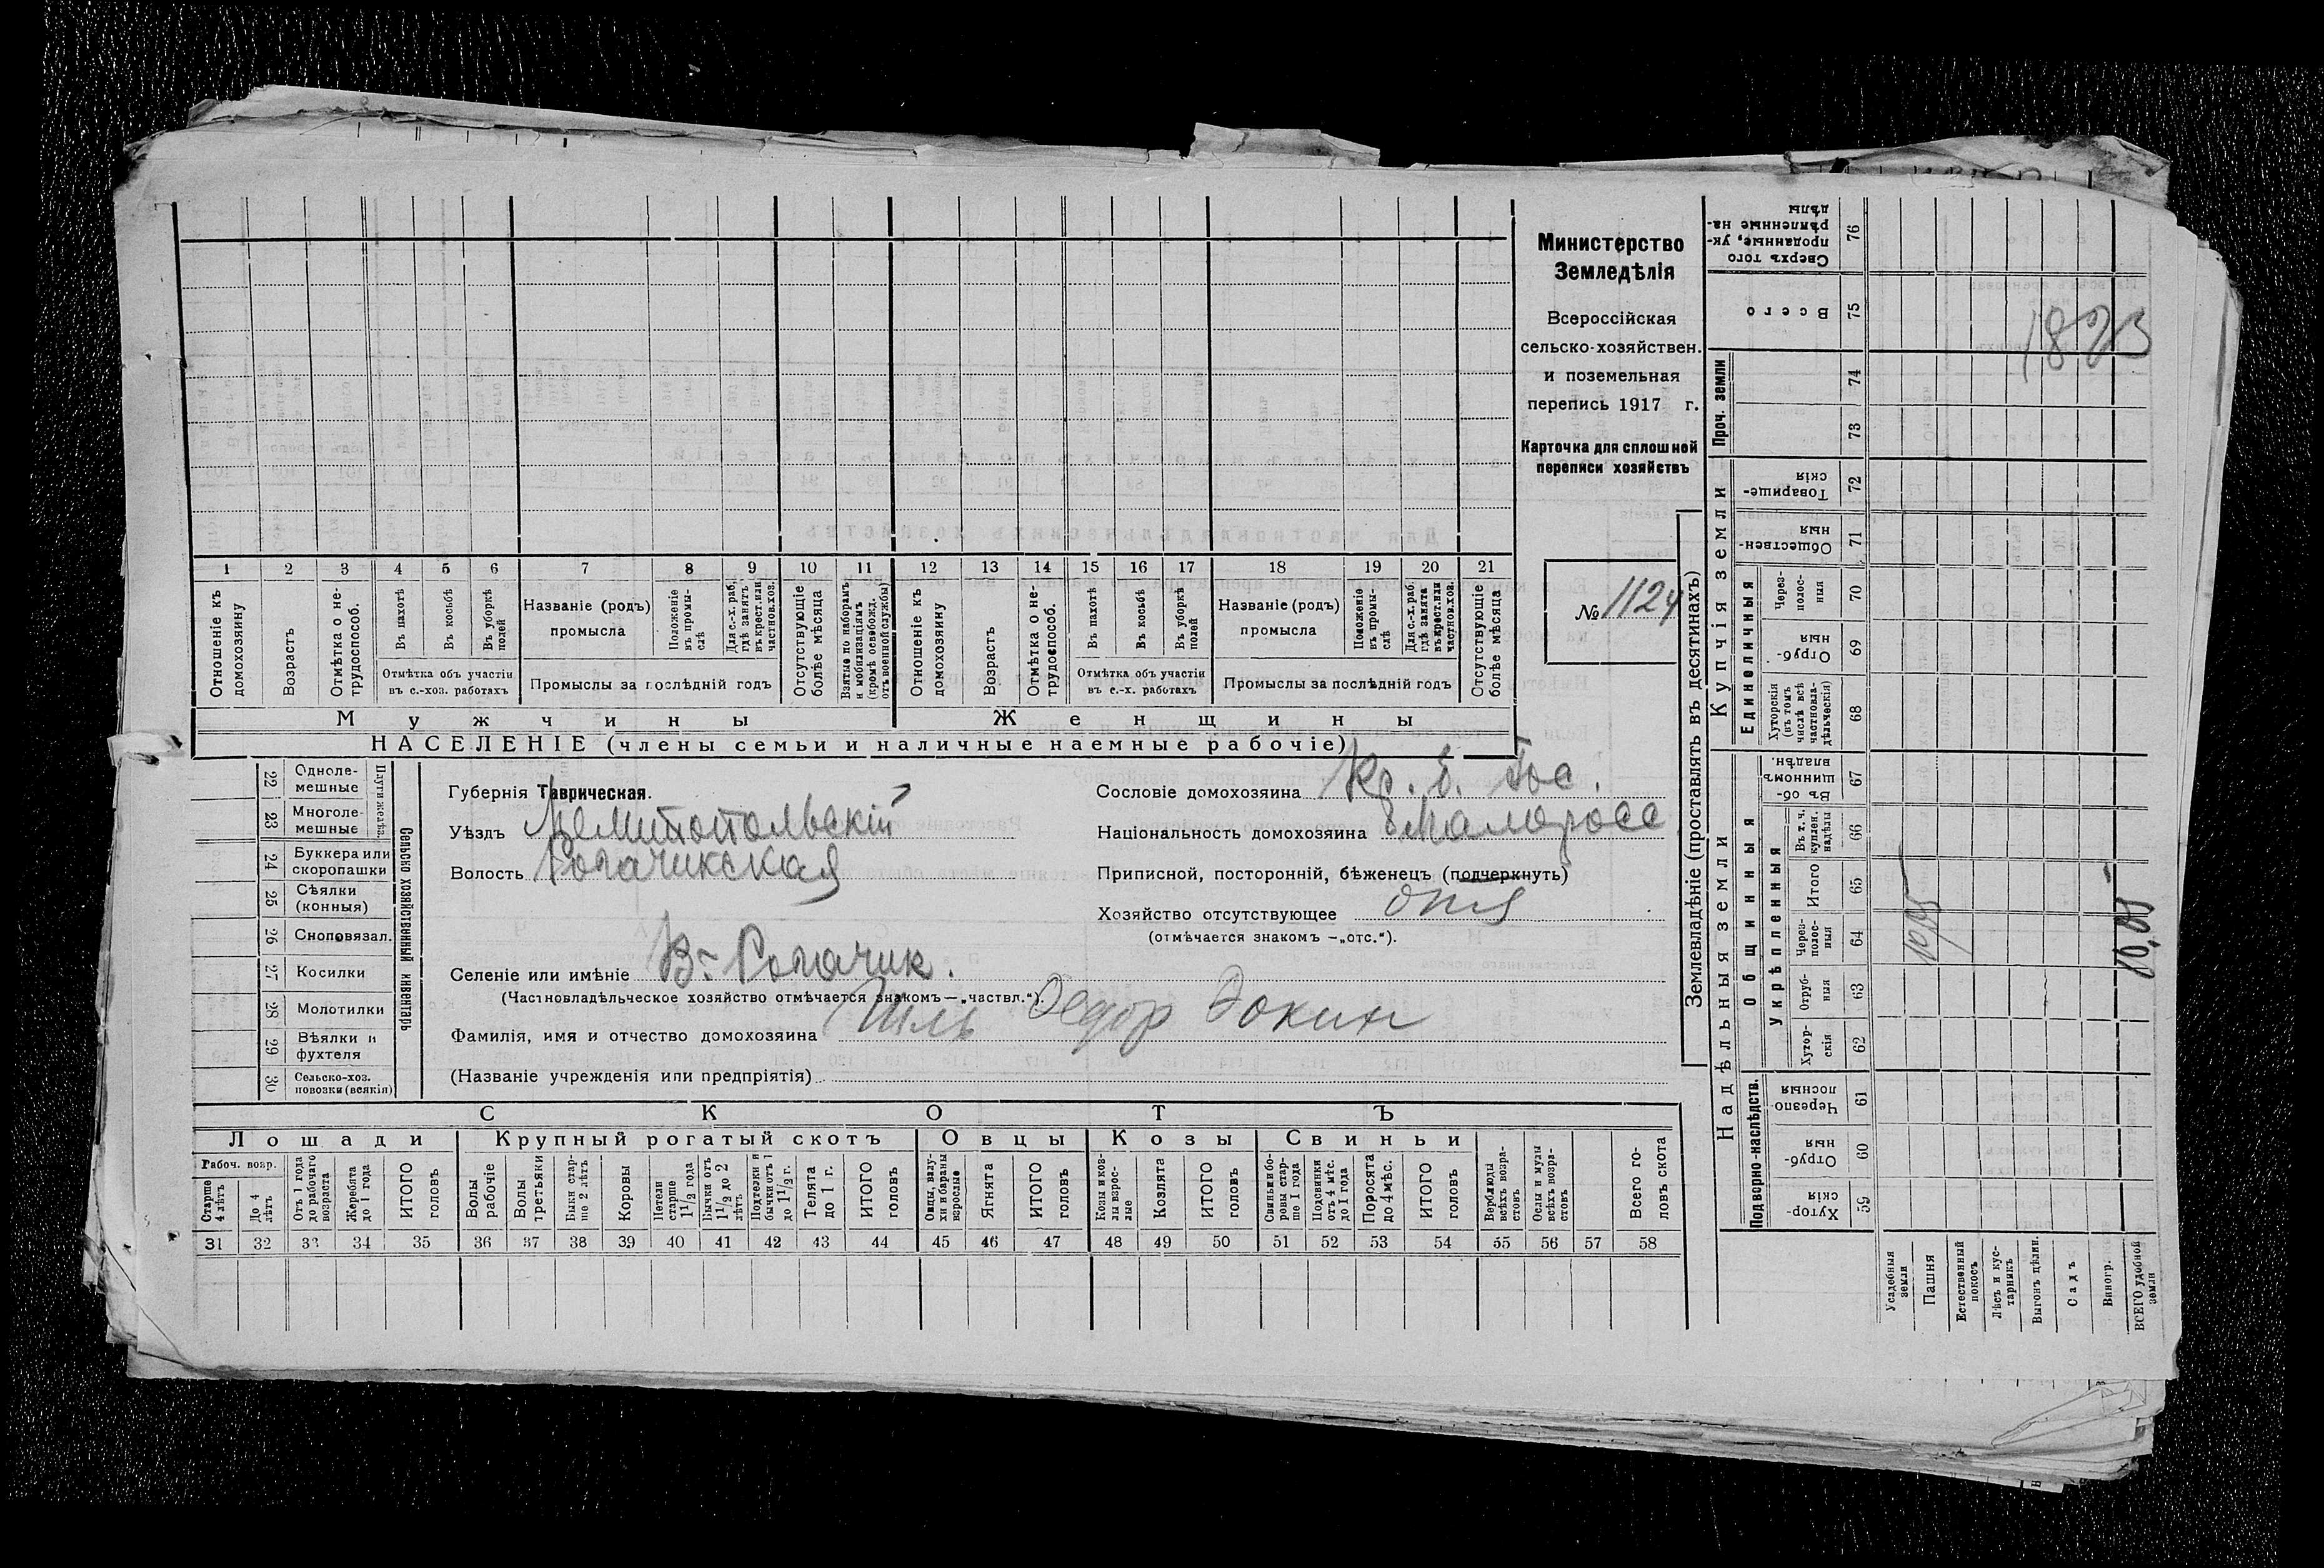 Министерство
Земледѣлія
Всероссійская
сельско-хозяйствен.
и поземельная
перепись 1917 г.
Карточка для сплошной
переписи хозяйствъ
№ 1124
1 2 3 4 5 6 7 8 9 10 11 12 13 14 15 16 17 18 19 20 21
Отношеніе къ домохозяину
Возрастъ
Отмѣтка о не-трудоспособ.
Въ пахотѣ
Въ косьбѣ
Въ уборкѣ полей
Отмѣтка объ участіи
въ с.-хоз. работахъ
Названіе (родъ)
промысла
Положеніе въ промы-слѣ
Для с.-х. раб. гдѣ занятъ въ крест. или частнов. хоз.
Промыслы за послѣдній годъ
Отсутствующіе болѣе мѣсяца
Взятые по наборамъ и мобилизаціямъ (кромѣ освобожд. отъ военной службы)
Отношеніе къ домохозяину
Возрастъ
Отмѣтка о не-трудоспособ.
Въ пахотѣ
Въ косьбѣ
Въ уборкѣ полей
Отмѣтка объ участіи
въ с.-х. работахъ
Названіе (родъ)
промысла
Положеніе въ промы-слѣ
Для с.-х. раб. гдѣ занята въ крест. или частнов. хоз.
Промыслы за послѣдній годъ
Отсутствующіе болѣе мѣсяца
Мужчины
Женщины
НАСЕЛЕНІЕ (члены семьи и наличные наемные рабочіе)
Сельско хозяйственный инвентарь
Плуги желѣз.
22 Одноле-мешные
23 Многоле-мешные
24 Буккера или скоропашки
25 Сѣялки (конныя)
26 Сноповязал.
27 Косилки
28 Молотилки
29 Вѣялки и фухтеля
30 Сельско-хоз. повозки (всякія)
Губернія Таврическая.
Уѣздъ Мелитопольскій
Волость Рогачикская
Селеніе или имѣніе В. Рогачик.
(Частновладѣльческое хозяйство отмѣчается знакомъ — „частвл.“).
Фамилія, имя и отчество домохозяина Федор
(Названіе учрежденія или предпріятія)
Сословіе домохозяина Кр. б. Гос.
Національность домохозяина Малоросс
Приписной, посторонній, бѣженецъ (подчеркнуть)
Хозяйство отсутствующее
(отмѣчается знакомъ — „отс.“).
СКОТЪ
Лошади
Крупный рогатый скотъ
Овцы
Козы
Свиньи
Рабоч. возр.
Старше 4 лѣтъ
До 4 лѣтъ
Отъ 1 года до рабочаго возраста
Жеребята до 1 года
ИТОГО головъ
Волы рабочіе
Волы третьяки
Быки стар-ше 2 лѣтъ
Коровы
Нетели старше 1 1/2 года
Бычки отъ 1 1/2 до 2 лѣтъ
Подтелки и бычки отъ 1 до 1 1/2 г.
Телята до 1 г.
ИТОГО головъ
Овцы, валу-хи и бараны взрослые
Ягнята
ИТОГО головъ
Козы и коз-лы взрос-лые
Козлята
ИТОГО головъ
Свиньи и бо-ровы стар-ше 1 года
Подсвинки отъ 4 мѣс. до 1 года
Поросята до 4 мѣс.
ИТОГО головъ
Верблюды всѣхъ возра-стовъ
Ослы и мулы всѣхъ возра-стовъ
Всего го-ловъ скота
31 32 33 34 35 36 37 38 39 40 41 42 43 44 45 46 47 48 49 50 51 52 53 54 55 56 57 58
Землевладѣніе (проставлять въ десятинахъ)
Надѣльныя земли
Купчія земли
Проч. земли
Подворно-наслѣдств.
Общинныя
Укрѣпленныя
Единоличныя
59 Хутор-скія
60 Отруб-ныя
61 Черезпо лосныя
62 Хутор-скія
63 Отруб-ныя
64 Через-полос-ныя
65 Итого
66 Въ т. ч. куплен. надѣлы
67 Въ об-щинномъ владѣн.
68 Хуторскія (въ томъ числѣ всѣ частновла-дѣльческія)
69 Отруб-ныя
70 Через-полос-ныя
71 Обществен-ныя
72 Товарище-скія
73
74
75 Всего
76 Сверхъ того проданные, ук-рѣпленные на-дѣлы
Усадебныя земли
Пашня
Естественный покосъ
Лѣсъ и кус-тарникъ
Выгонъ цѣлин.
Садъ
Виногр.
ВСЕГО удобной земли